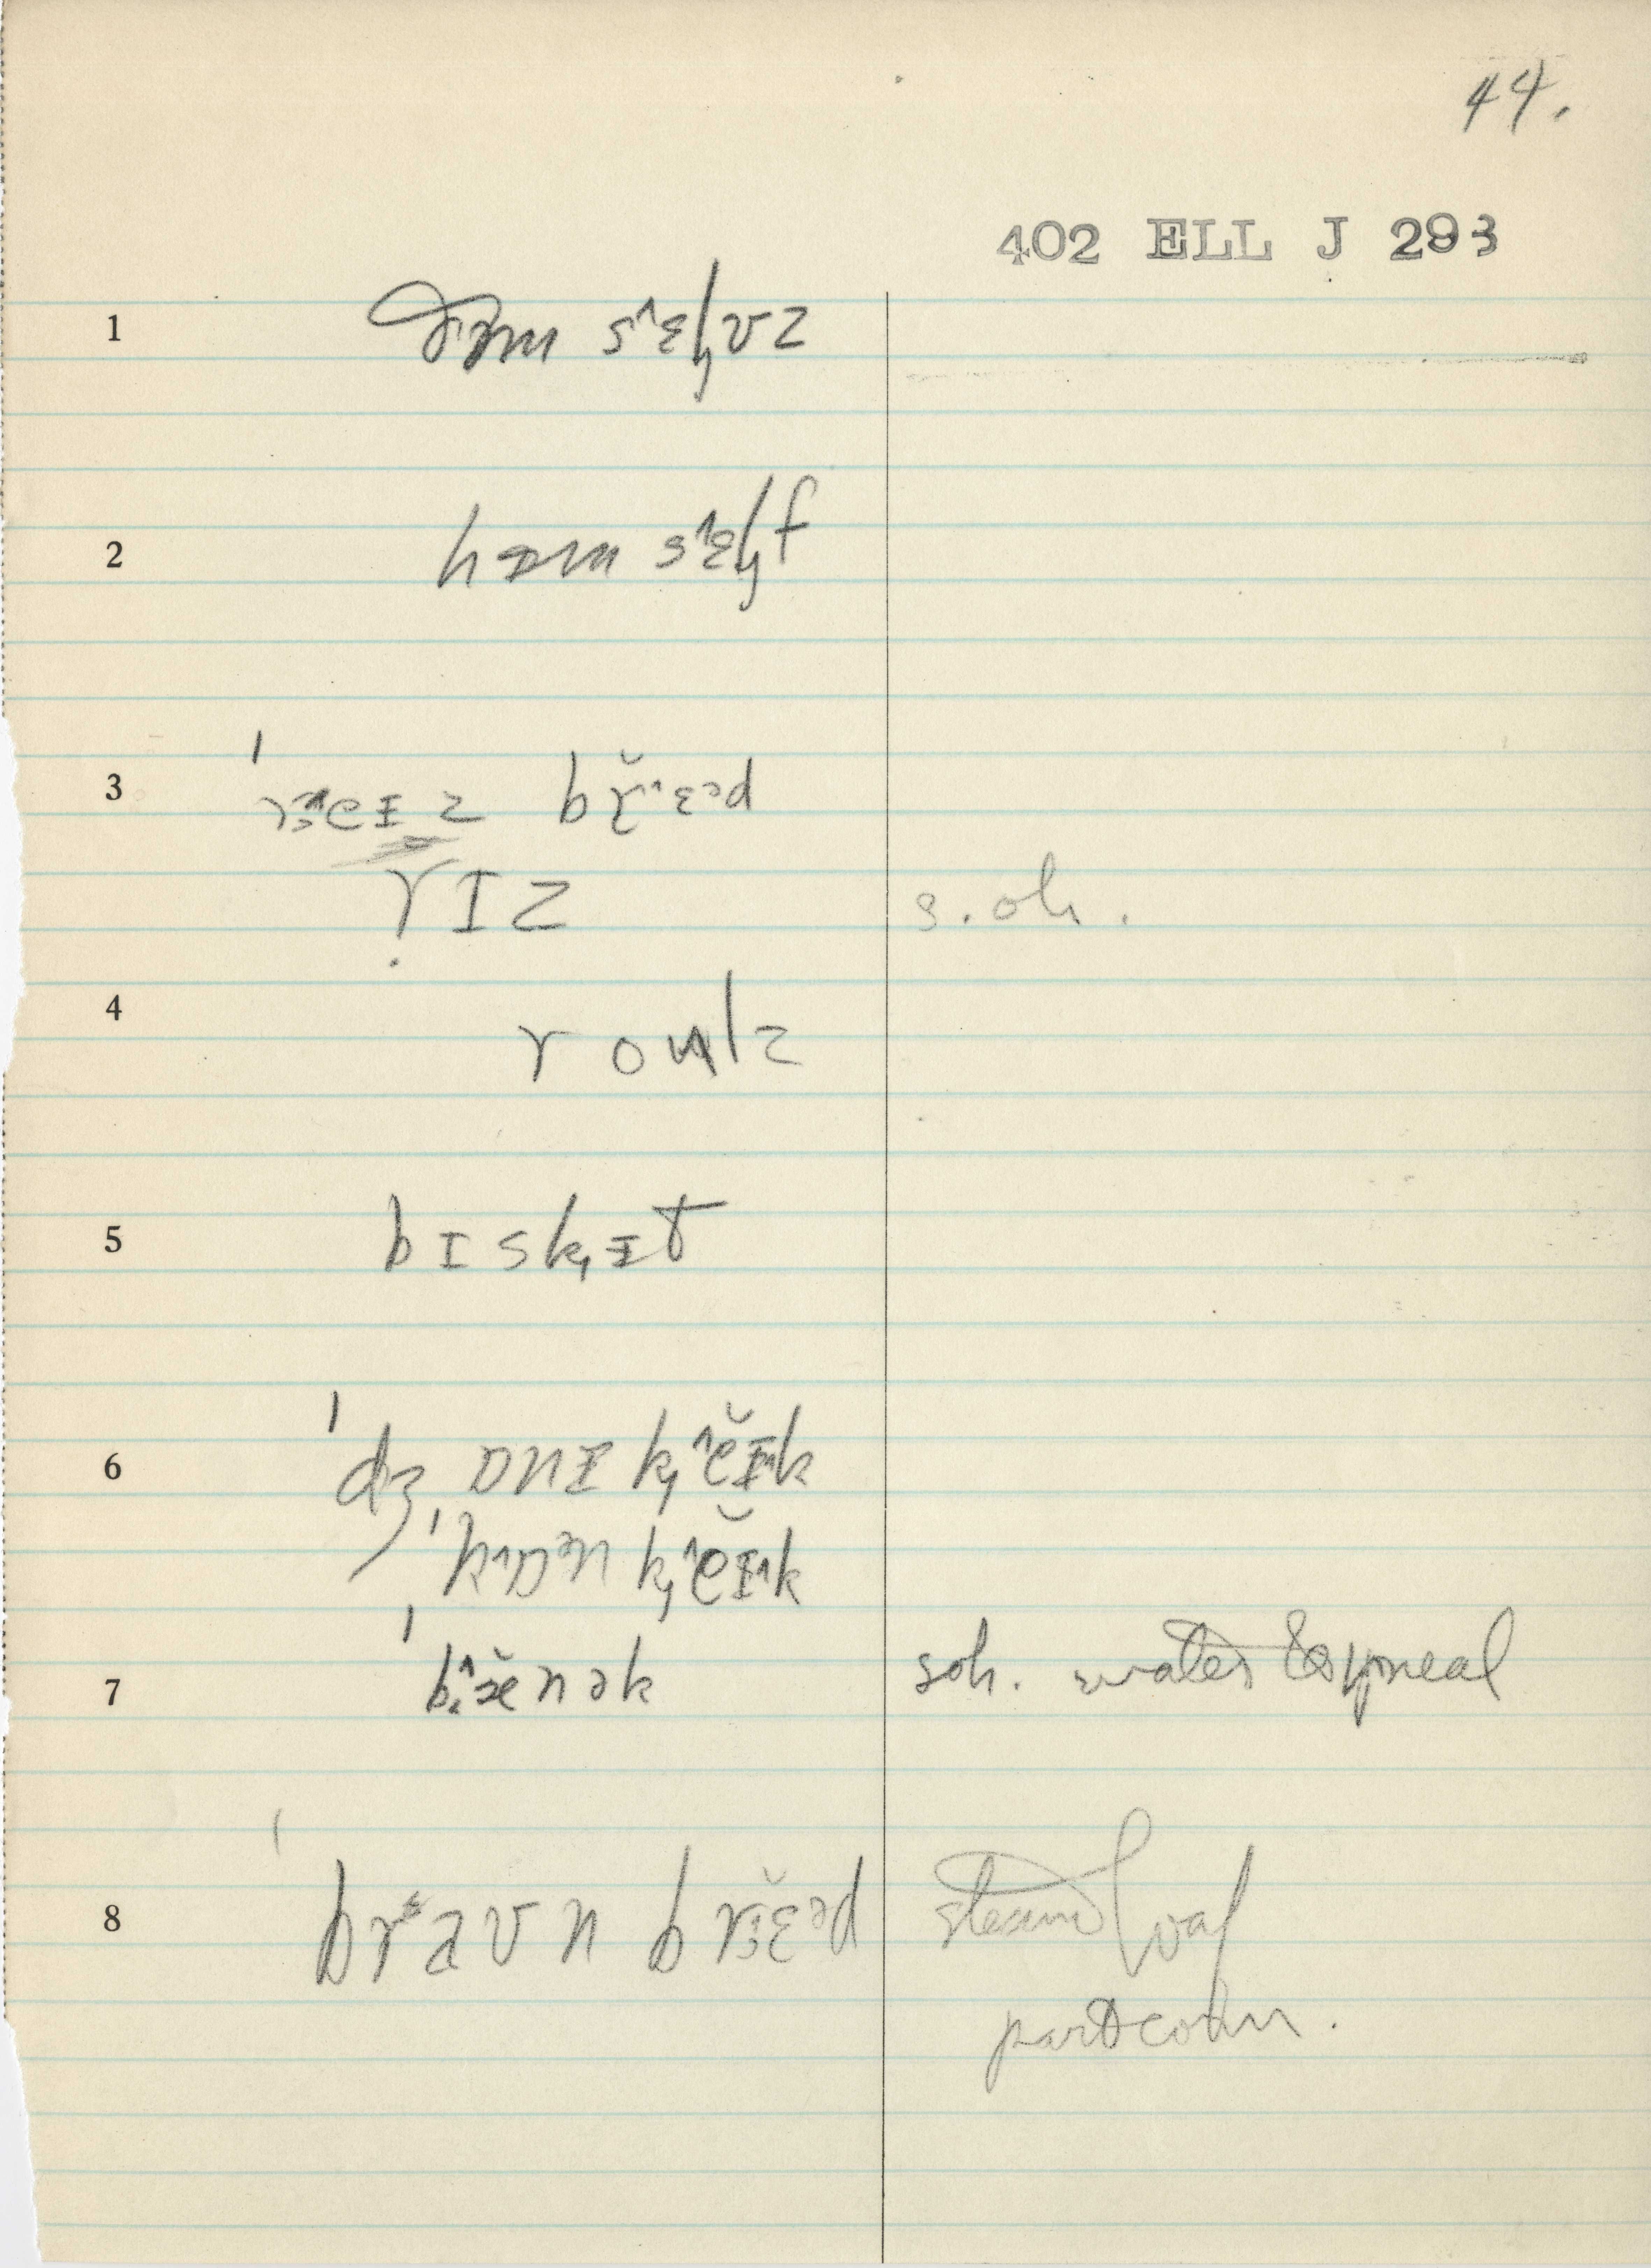 44.
402 ELL J 293
1 ðəm s^ɛl̡vz
2 hɪm s^ɛl̡f
3 bɹ̆^ɛᵊd
rɪz s.oh.
4 roulz
5 bɪsk̡ɪt
6 ˈdʒɒnɪ k̡^ĕɪ^k
ˈk^ɒᵊn k̡^ĕɪ^k
7 ˈb^æ̆nək soh. water & meal
8 ˈbravn brɛ̆ᵊd steam loaf
part corn.